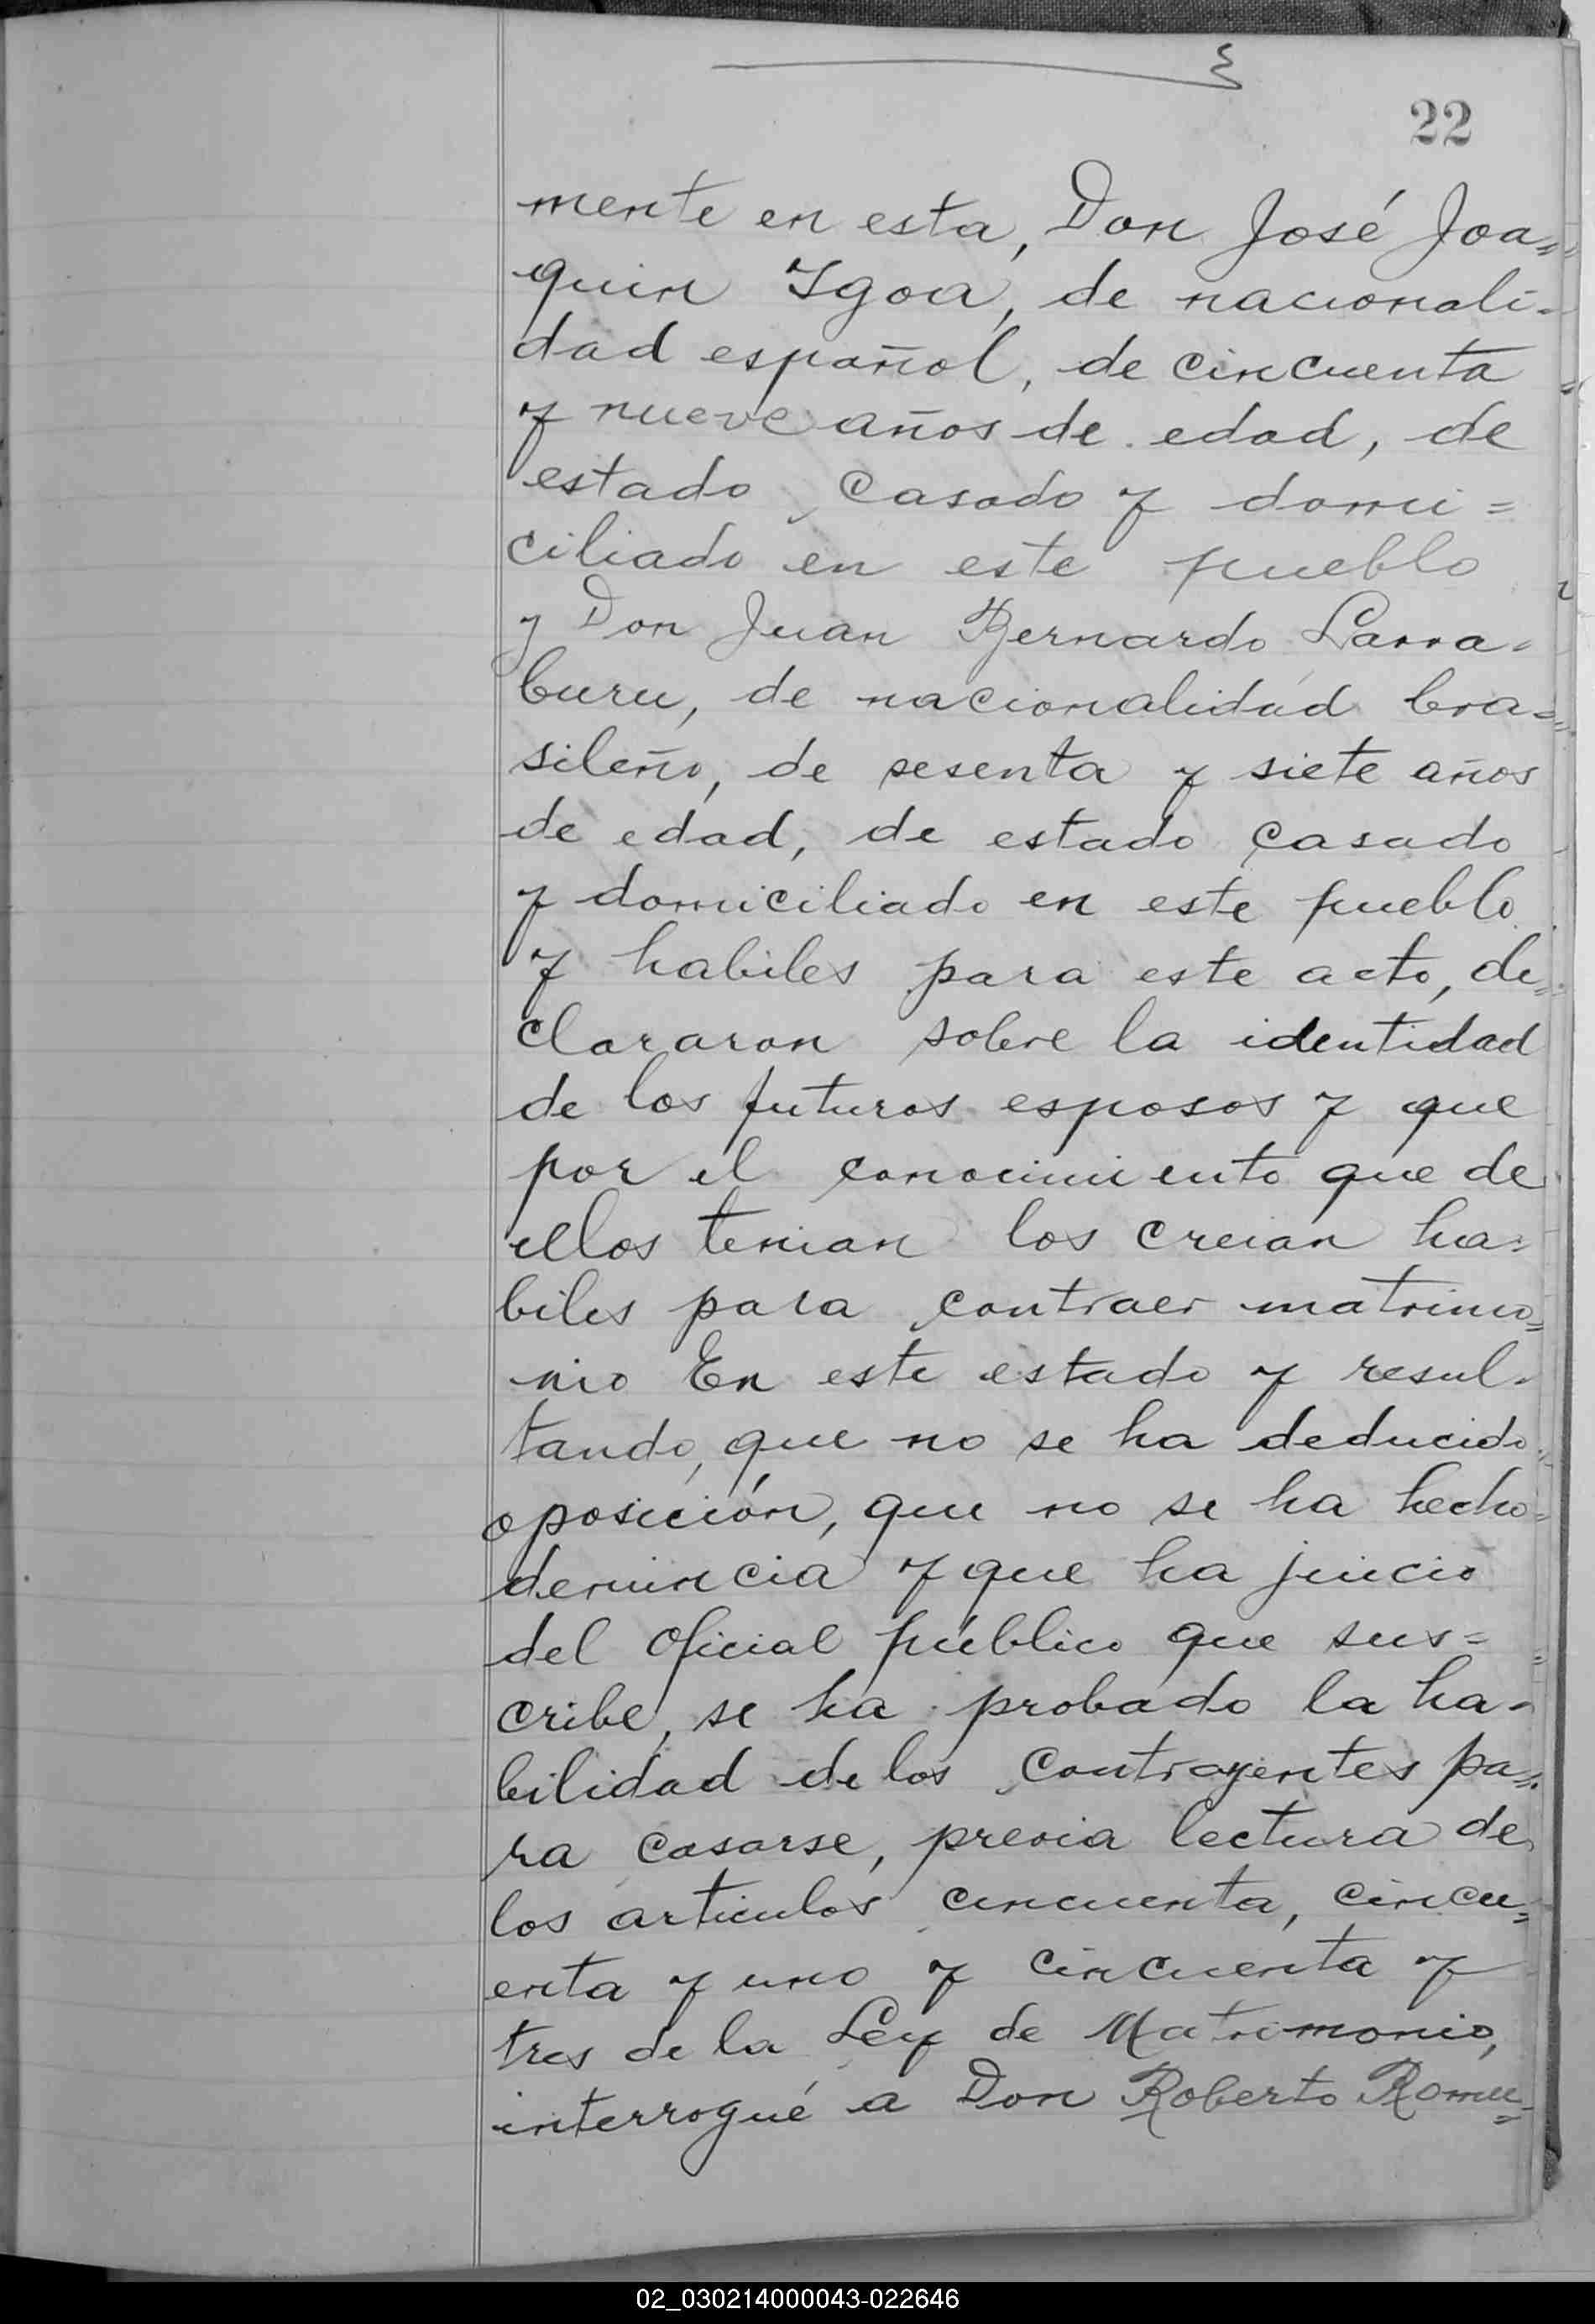 22
mente en esta, Don José Joa=
quin Ygoa, de nacionali-
dad español, de cincuenta
y nueve años de edad, de
estado casado y domi=
ciliado en este pueblo
y Don Juan Bernardo Larra-
buru, de nacionalidad bra=
sileño, de sesenta y siete años
de edad, de estado casado
y domiciliado en este pueblo
y habiles para este acto, de=
clararon sobre la identidad
de los futuros esposos y que
por el conocimiento que de
ellos tenian los creian ha=
biles para contraer matrimo=
nio En este estado y resul-
tando, que no se ha deducido
oposición, que no se ha hecho
denuncia y que ha juicio
del oficial público que sus=
cribe, se ha probado la ha-
bilidad de los contrayentes pa=
ra casarse, previa lectura de
los articulos cincuenta, cincu=
enta y uno y cincuenta y
tres de la Ley de Matrimonio,
interrogué a Don Roberto Romu=
02_030214000043-022646